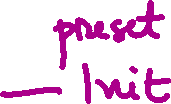 preset
— Init